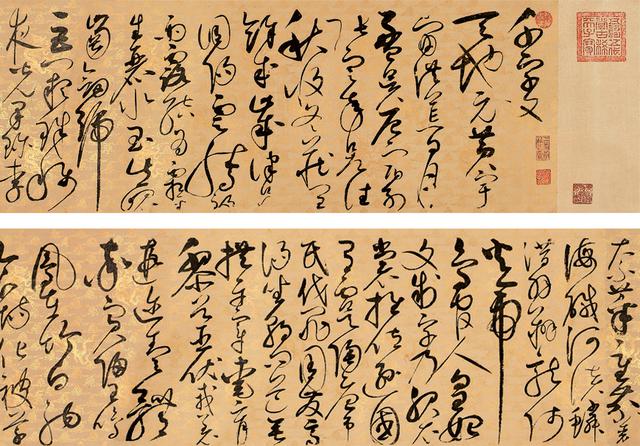 千字文
天地元黃宇
宙洪荒日月
盈昃辰宿列
張寒來暑往
秋收冬藏閏
餘成歲律呂
調陽雲騰致
雨露結為霜金
生麗水玉出崑
崗劍號
巨闕珠稱
夜光果珍李
柰菜重芥薑
海鹹河淡鱗
潛羽翔龍師
火帝
鳥官人皇始
制文字乃服衣
裳推位遜國
有虞陶唐弔
民伐罪周發商
湯坐朝問道垂
拱平章愛育
黎首臣伏戎羌
遐邇壹體
率賓歸王鳴
鳳在竹白駒
食場化被草